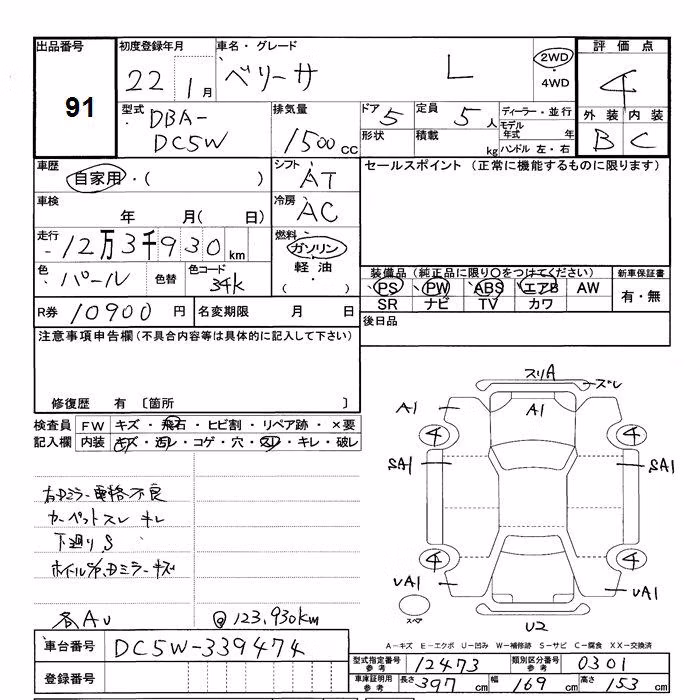 出品番号
91
初度登録年月
22 1月
車名・グレード
ベリーサ L
2WD
・
4WD
評価点
4
外装 内装
B C
型式
DBA-
DC5W
排気量
1500cc
ドア 5
定員 5人
ディーラー・並行
モデル年式 年
形状
積載 kg
ハンドル 左・右
車歴
自家用・( )
シフト
AT
車検
年 月( 日)
冷房
AC
走行
12万3千930km
燃料
ガソリン
軽油
( )
色
パール
色替
色コード
34K
R券 10900円
名変期限 月 日
セールスポイント(正常に機能するものに限ります)
装備品(純正品に限り〇をつけてください)
PS PW ABS エアB AW
SR ナビ TV カワ
新車保証書
有・無
後日品
注意事項申告欄(不具合内容等は具体的に記入して下さい)
修復歴 有 〔箇所 〕
検査員記入欄
FW キズ・飛石・ヒビ割・リペア跡・×要
内装 キズ・汚レ・コゲ・穴・スレ・キレ・破レ
右Dミラー電格不良
カーペットスレ キレ
下廻りS
ドミラーキズ
各AU
@123,930km
スリA
ズレ
A1 A1
4 4
SA1 SA1
4 4
UA1 UA1
スペア
U2
A-キズ E-エクボ U-凹み W-補修跡 S-サビ C-腐食 XX-交換済
車台番号 DC5W-339474
登録番号
型式指定番号参考 12473
類別区分番号参考 0301
車庫証明用参考 長さ397cm 幅169cm 高さ153cm